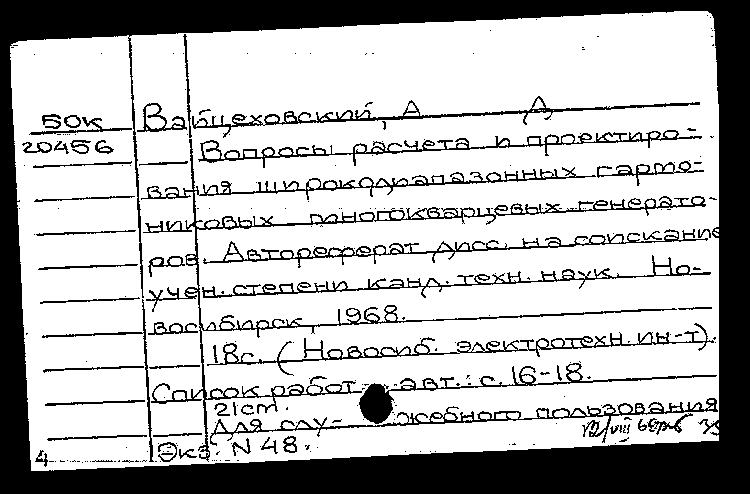 50к Вайцеховский, А А
20456 Вопросы расчета и проектиро-
вания широкодиапазонных гармо-
никовых многокварцевых генерато-
ров. Автореферат дисс. на соискание
учен. степени канд. техн. наук. Но-
восибирск, 1968.
18с. (Новосиб. электротехн. ин-т).
Список работ авт.: с. 16-18.
21cm.
Для слу- жебного пользования
Экз. N 48.
4